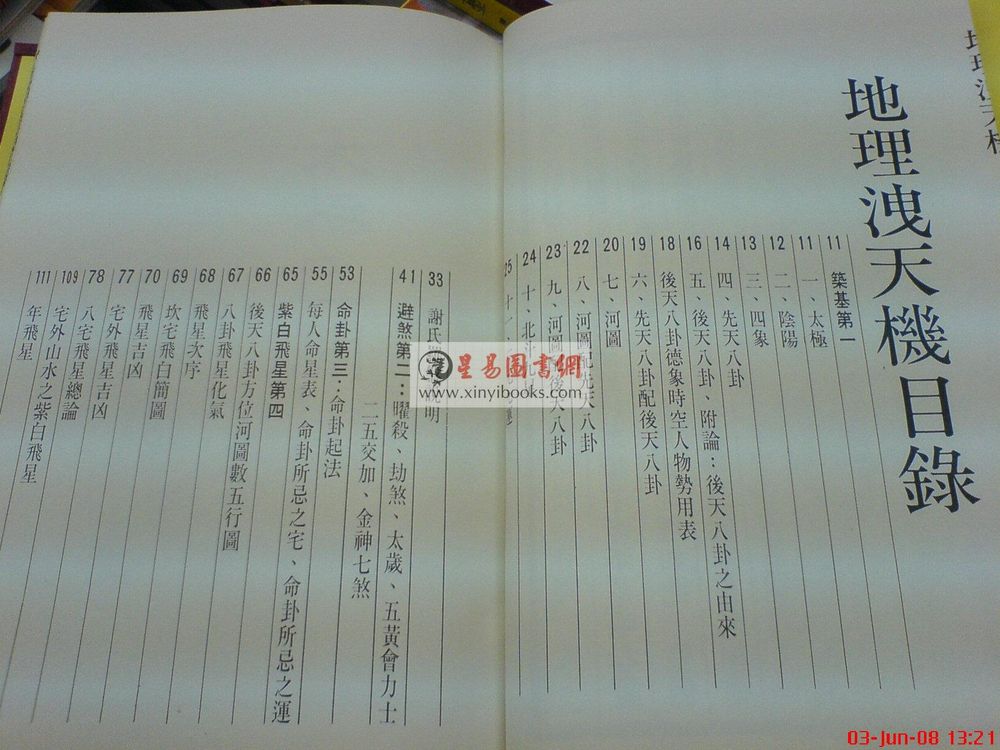 地理洩天機
地理洩天機目錄
11 築基第一
11 一、太極
12 二、陰陽
13 三、四象
14 四、先天八卦
16 五、後天八卦、附論：後天八卦之由來
18 後天八卦德象時空人物勢用表
19 六、先天八卦配後天八卦
20 七、河圖
22 八、河圖配先天八卦
23 九、河圖 後天八卦
24 十、北斗九
25 十一、
33 謝氏 說明
41 避煞第二：曜殺、劫煞、太歲、五黃會力士
二五交加、金神七煞
53 命卦第三：命卦起法
55 每人命星表、命卦所忌之宅、命卦所忌之運
65 紫白飛星第四
66 後天八卦方位河圖數五行圖
67 八卦飛星化氣
68 飛星次序
69 坎宅飛白簡圖
70 飛星吉凶
77 宅外飛星吉凶
78 八宅飛星總論
109 宅外山水之紫白飛星
111 年飛星
星易圖書網
www.xinyibooks.com
03-Jun-08 13:21